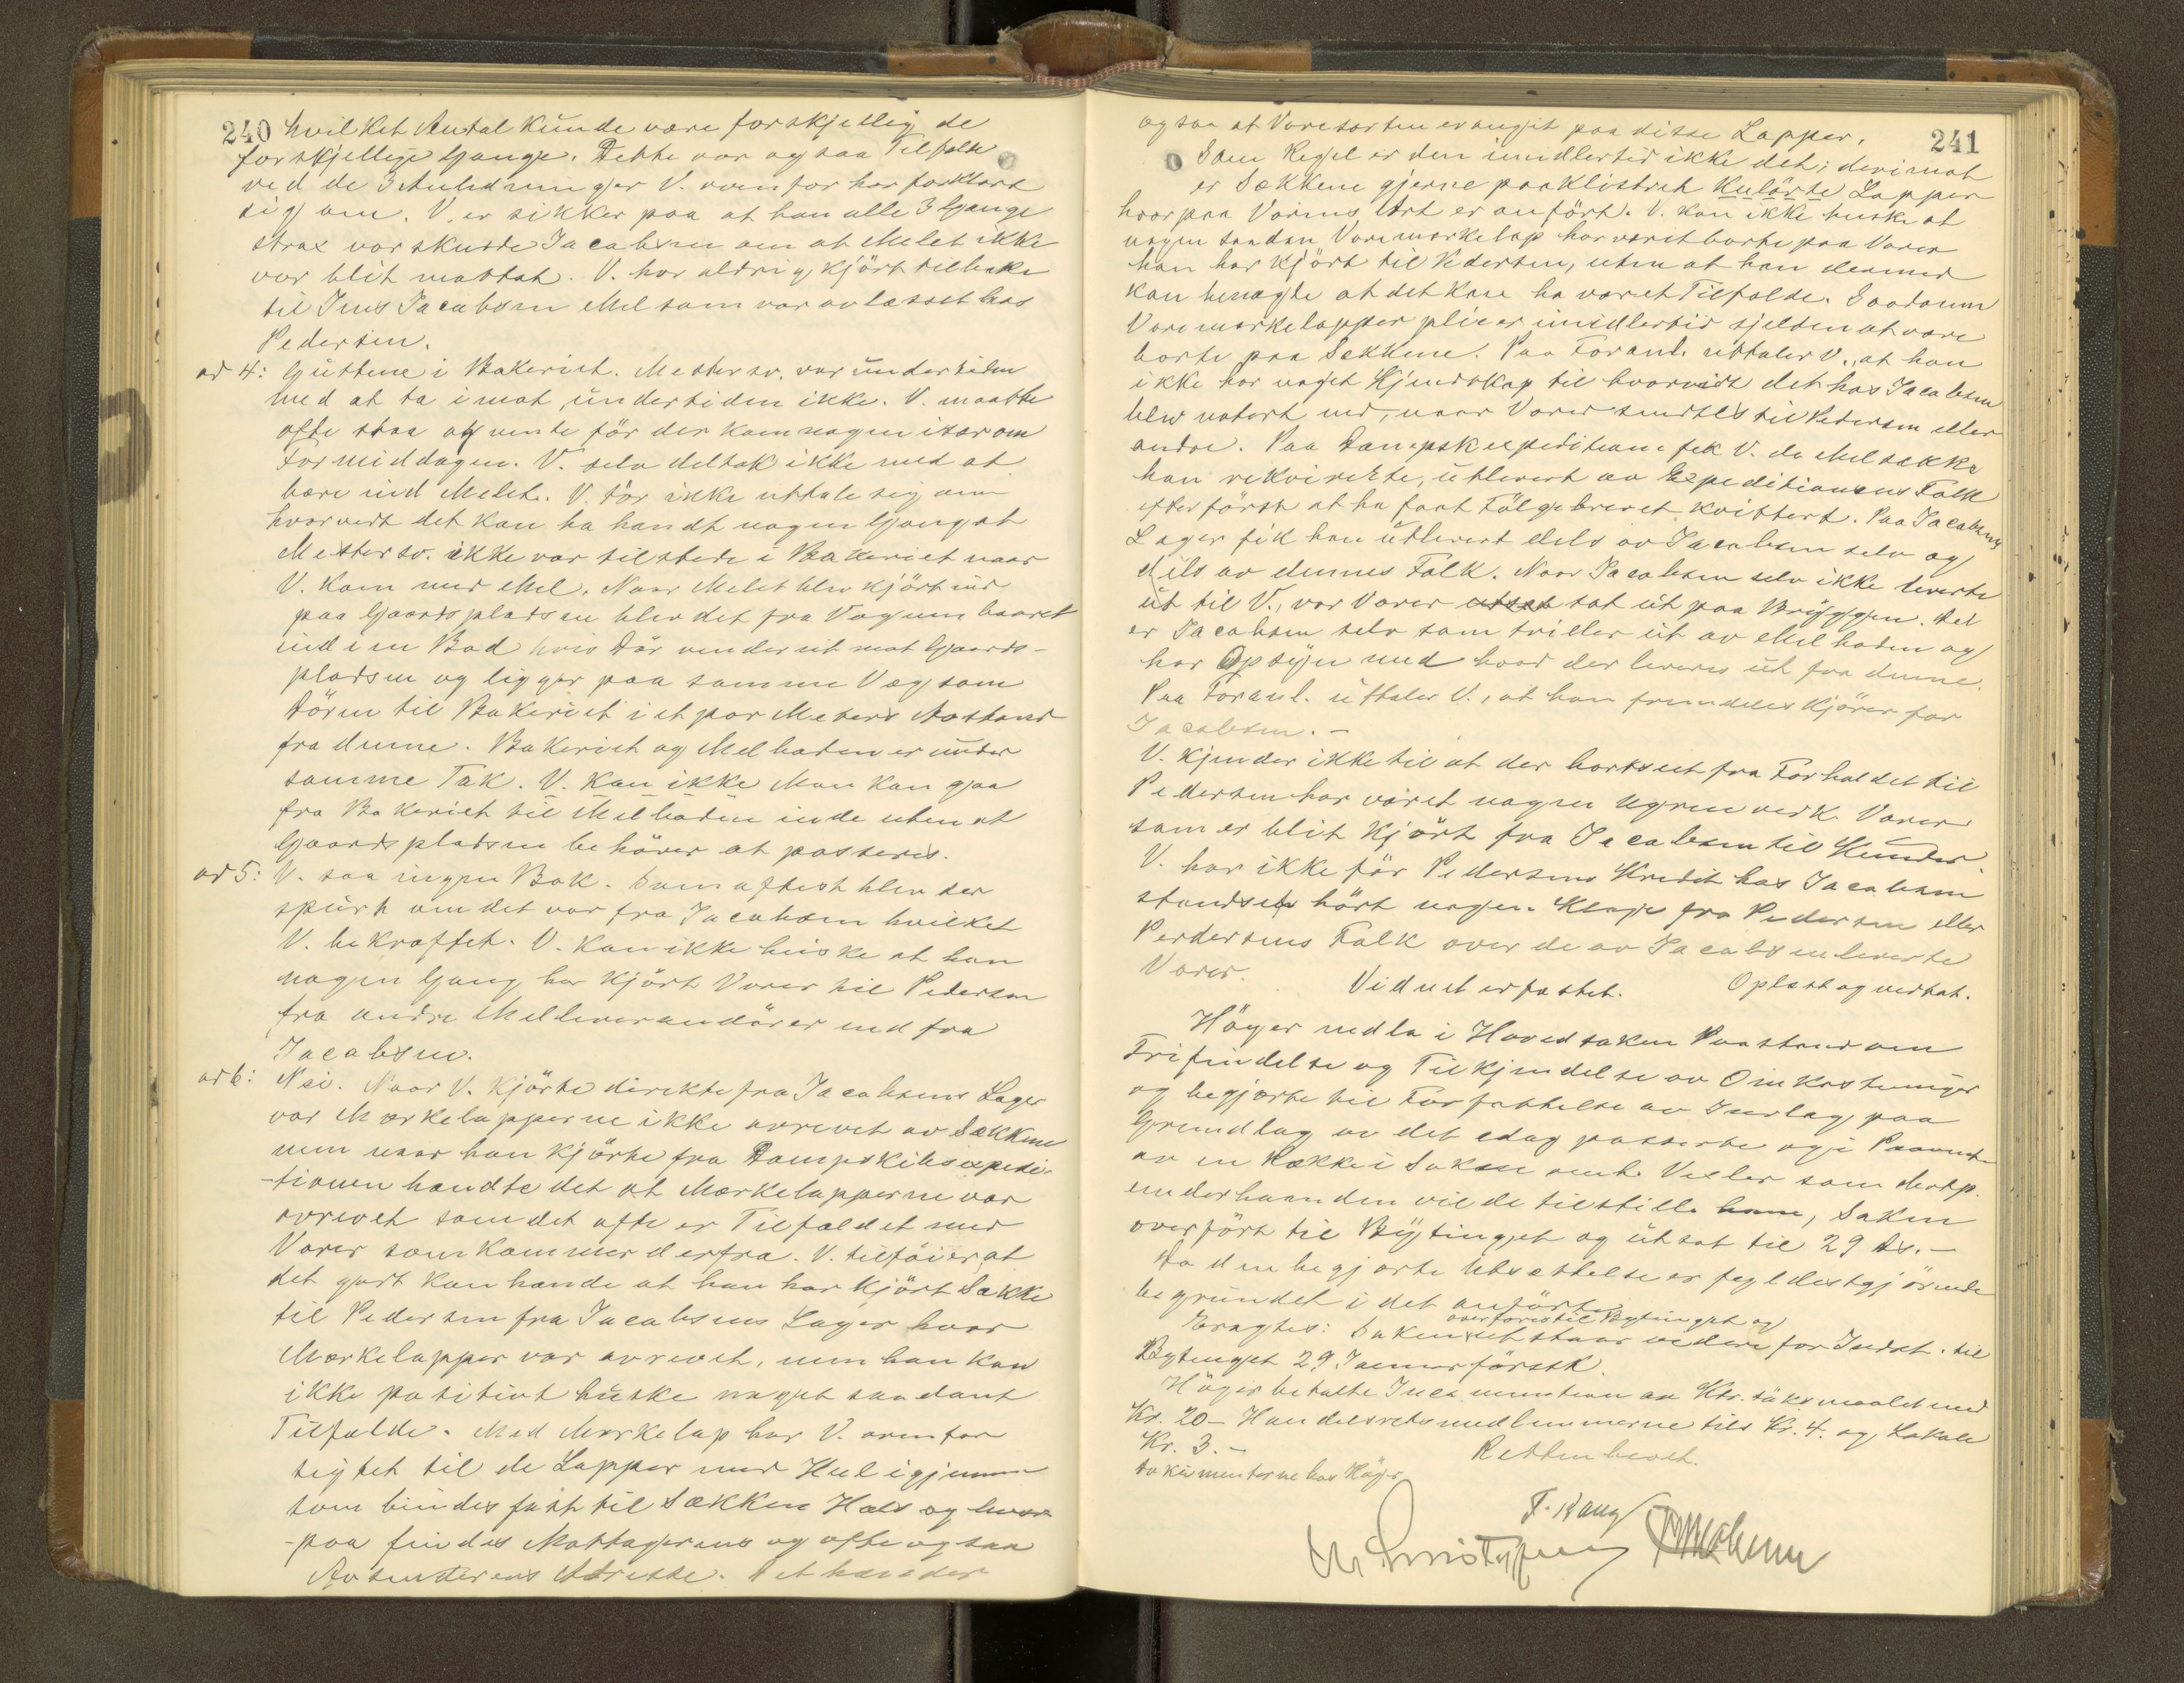 240 hvilket Antal kunde være forskjellig de
forskjellige Gange. Dette var ogsaa Tilfælde
ved de 3 Anledninger V. ovenfor har forklart
sig om. V. er sikker paa at han alle 3 Gange
strax varskudde Jacobsen om at Melet ikke
var blit mottat. V. har aldrig kjørt tilbake
til Jens Jacobsen Mel som var avlæsset hos
Pedersen.
ad 4: Guttene i Bakeriet. Mestersv. var undertiden
med at ta imot undertiden ikke. V. maatte
ofte staa og vente før der kom nogen især om
Formiddagen. V. selv deltok ikke med at
bære ind Melet. V. tør ikke uttale sig om
hvorvidt det kan ha hændt nogen Gang at
Mestersv. ikke var tilstede i Bakeriet naar
V. kom med Mel. Naar Melet blev kjørt ind
paa Gaardspladsen blev det fra Vognen baaret
ind i en Bod hvis Dør vender ut mot Gaards-
pladsen og ligger paa samme Væg som
Døren til Bakeriet i et par Meters Avstand
fra denne. Bakeriet og Melboden er under
samme Tak. V. kan ikke Man kan gaa
fra Bakeriet til Melboden inde uten at
Gaardspladsen behøver at passeres.
ad 5: V. saa ingen Bok. Som oftest blev der
spurt om det var fra Jacobsen hvilket
V. bekræftet. V. kan ikke huske at han
nogen Gang har kjørt Varer til Pedersen
fra andre Melleverandører end fra
Jacobsen.
ad 6: Nei. Naar V. kjørte direkte fra Jacobsens Lager
var Mærkelapperne ikke avrevet av Sækkene
men naar han kjørte fra Dampskibsexpedi-
-tionen hændte det at Mærkelapperne var
avrevet som det ofte er Tilfældet med
Varer som kommer derfra. V. tilføier at
det godt kan hænde at han har kjørt Sække
til Pedersen fra Jacobsens Lager hvor
Mærkelapper var avrevet, men han kan
ikke positivt huske noget saadant
Tilfælde. Med Mærkelap har V. ovenfor
sigtet til de Lapper med Hul igjennem
som bindes fast til Sækkens Hals og hvor-
-paa findes Mottagerens og ofte ogsaa
Avsenderens Adresse. Det hænder
241
ogsaa at Varesorten er angit paa disse Lapper.
Som Regel er den imidlertid ikke det; derimot
er Sækkene gjerne paaklistret kulørte Lapper
hvorpaa Varens Art er anført. V. kan ikke huske at
nogen saadan Varemærkelap har været borte paa Varer
han har kjørt til Pedersen, uten at han dermed
kan benægte at det kan ha været Tilfælde. Saadanne
Varemærkelapper pleier imidlertid sjelden at være
borte paa Sækkene. Paa Foranl. uttaler V., at han
ikke har noget Kjendskap til hvorvidt det hos Jacobsen
blev notert ned, naar Varer sendtes til Pedersen eller
andre. Paa Dampskexpeditione fik V. de Melsække
han rekvirerte, utlevert av Expeditionens Folk
efter først at ha faat Følgebrevet kvittert. Paa Jacobsens
Lager fik han utlevert dels av Jacobsen selv og
dels av dennes Folk. Naar Jacobsen selv ikke leverte
ut til V., var Varer utsat sat ut paa Bryggen. Det
er Jacobsen selv som triller ut av Melboden og
har Opsyn med hvad der leveres ut fra denne.
Paa Foranl. uttaler V., at han fremdeles kjører for
Jacobsen. -
V. kjender ikke til at der bortset fra Forholdet til
Pedersen har været nogen Ugrei vedk. Varer
som er blit kjørt fra Jacobsen til Kunder.
V. har ikke før Pedersens Kredit hos Jacobsen
standset hørt nogen Klage fra Pedersen eller
Perdersens Folk over de av Jacobsen leverte
Varer.
Vidnet erfæstet. Oplæst og vedtat.
Høyer nedla i Hovedsaken Paastand om
Frifindelse og Tilkjendelse av Omkostninger
og begjærte til Forfattelse av Innlæg paa
Grundlag av det idag passerte og i Paavente
av en Række i Saken omh. Vexler som Modp.
underhaanden vilde tilstille ham, Saken
overført til Bytinget og utsat til 29 ds. -
Da den begjærte Utsættelse er fyldestgjørende
begrundet i det anførte
overføres til Bytinget og
Eragtes: Saken utstaar videre for Indst. til
Bytinget 29 Januar førstk.
Høyer betalte Incamination av Ktr.søksmaalet med
Kr. 20 - Handelsretsmedlemmerne tils Kr. 4. og Lokale
Kr. 3. -
Retten hævet.
Dokumenterne hos Høyer